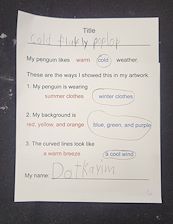 Title
cold flaky poplop
My penguin likes warm cold weather.
These are the ways I showed this in my artwork.
1. My penguin is wearing
summer clothes winter clothes
2. My background is
red, yellow, and orange blue, green, and purple
3. The curved lines look like
a warm breeze a cool wind
My name: